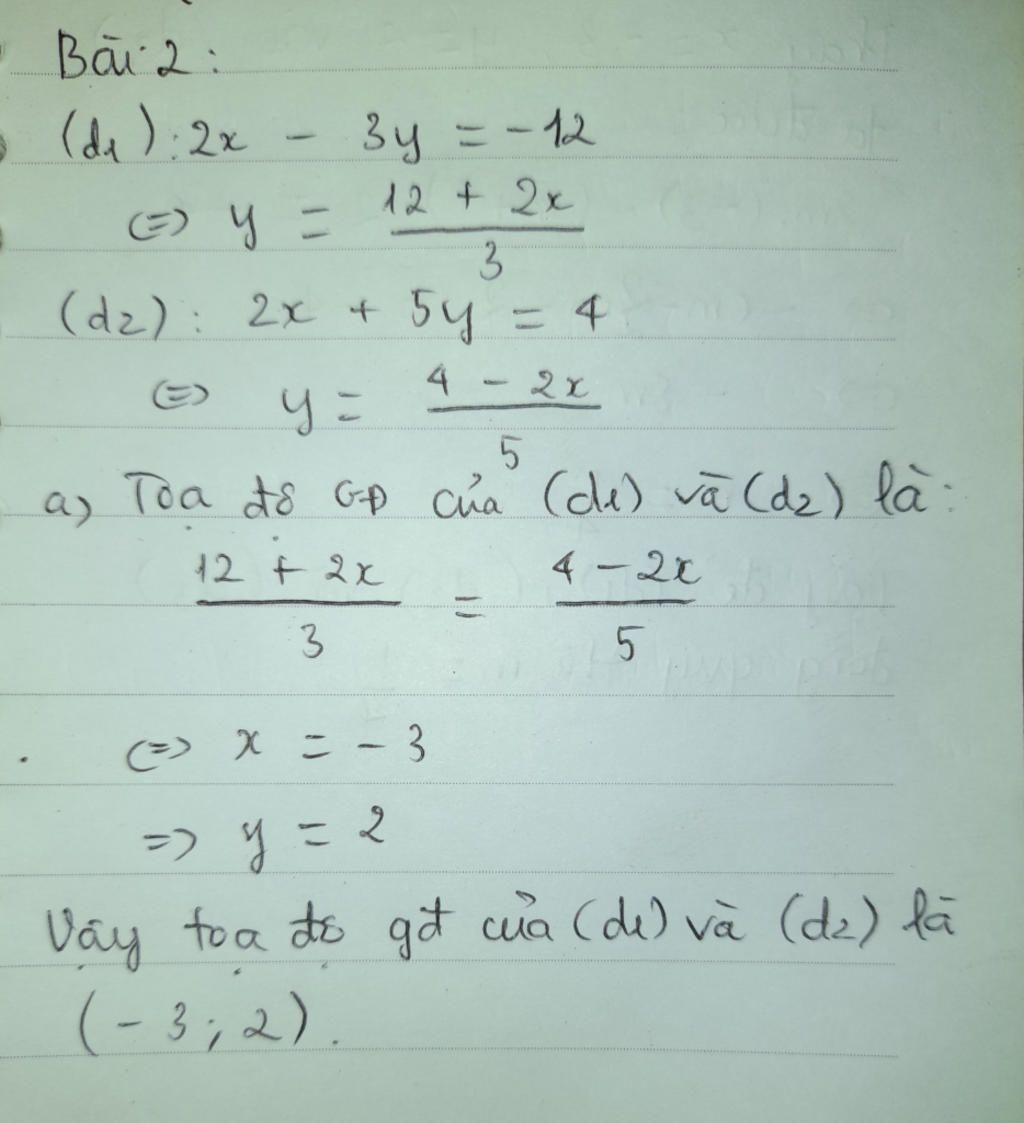 Bài 2:
(d1): 2x - 3y = -12
<=> y = (12 + 2x)/3
(d2): 2x + 5y = 4
<=> y = (4 - 2x)/5
a) Tọa độ GĐ của (d1) và (d2) là:
(12 + 2x)/3 = (4 - 2x)/5
<=> x = -3
=> y = 2
Vậy tọa độ gđ của (d1) và (d2) là
(-3; 2).